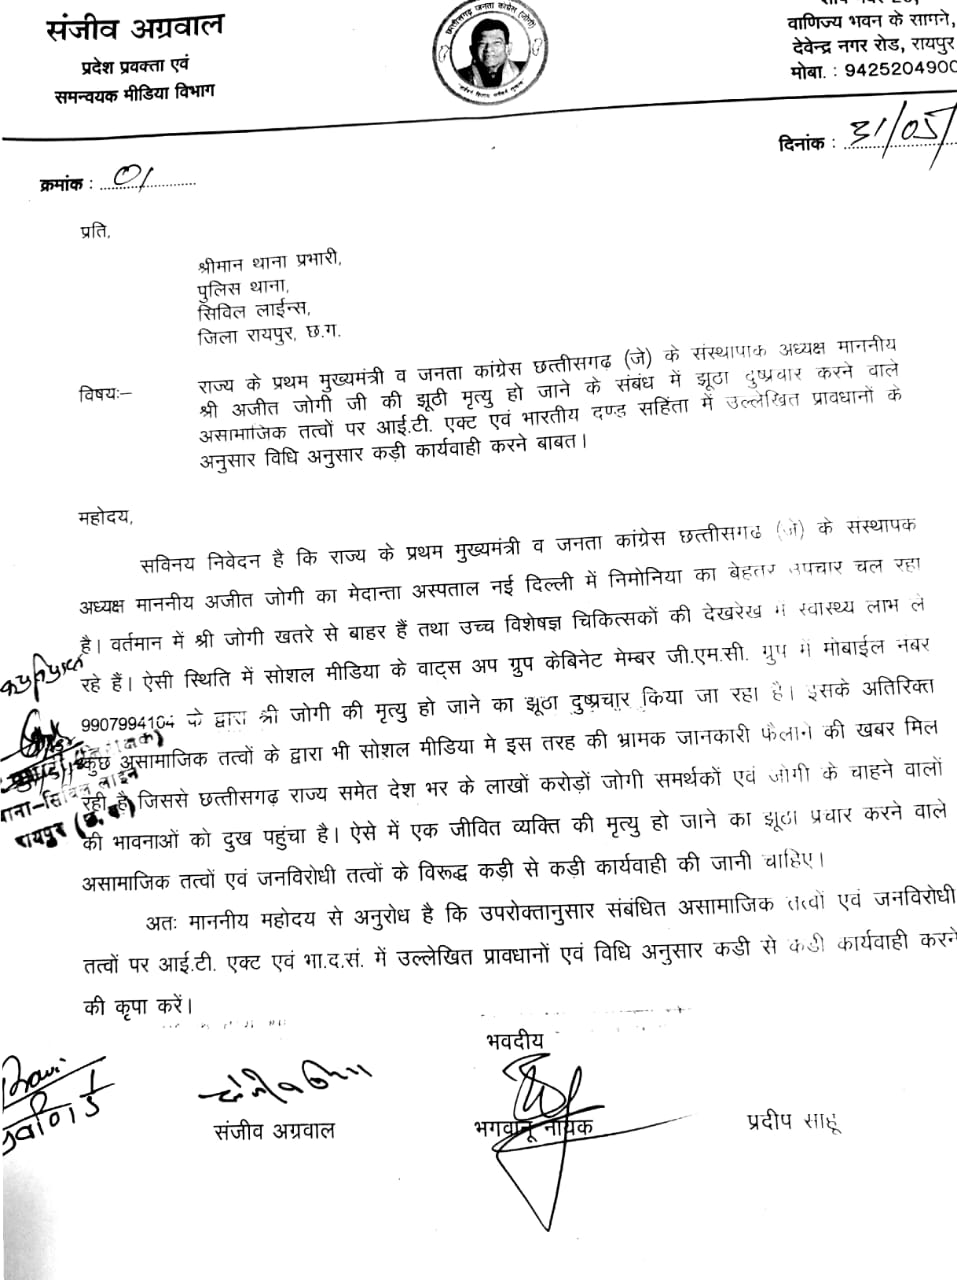 संजीव अग्रवाल
प्रदेश प्रवक्ता एवं
समन्वयक मीडिया विभाग
छत्तीसगढ़ जनता कांग्रेस (जोगी)
वाणिज्य भवन के सामने,
देवेन्द्र नगर रोड, रायपुर
मोबा. : 9425204900
दिनांक : 31/05/
क्रमांक : 01
प्रति,
श्रीमान थाना प्रभारी,
पुलिस थाना,
सिविल लाईन्स,
जिला रायपुर, छ.ग.
विषयः– राज्य के प्रथम मुख्यमंत्री व जनता कांग्रेस छत्तीसगढ़ (जे) के संस्थापाक अध्यक्ष माननीय
श्री अजीत जोगी जी की झूठी मृत्यु हो जाने के संबंध में झूठा दुष्प्रचार करने वाले
असामाजिक तत्वों पर आई.टी. एक्ट एवं भारतीय दण्ड सहिंता में उल्लेखित प्रावधानों के
अनुसार विधि अनुसार कड़ी कार्यवाही करने बाबत।
महोदय,
सविनय निवेदन है कि राज्य के प्रथम मुख्यमंत्री व जनता कांग्रेस छत्तीसगढ (जे) के संस्थापक
अध्यक्ष माननीय अजीत जोगी का मेदान्ता अस्पताल नई दिल्ली में निमोनिया का बेहतर उपचार चल रहा
है। वर्तमान में श्री जोगी खतरे से बाहर हैं तथा उच्च विशेषज्ञ चिकित्सकों की देखरेख में स्वास्थ्य लाभ ले
रहे हैं। ऐसी स्थिति में सोशल मीडिया के वाट्स अप ग्रुप केबिनेट मेम्बर जी.एम.सी. ग्रुप में मोबाईल नबर
9907994104 के द्वारा श्री जोगी की मृत्यु हो जाने का झूठा दुष्प्रचार किया जा रहा है। इसके अतिरिक्त
कुछ असामाजिक तत्वों के द्वारा भी सोशल मीडिया मे इस तरह की भ्रामक जानकारी फैलाने की खबर मिल
रही है जिससे छत्तीसगढ़ राज्य समेत देश भर के लाखों करोड़ों जोगी समर्थकों एवं जोगी के चाहने वालों
की भावनाओं को दुख पहुंचा है। ऐसे में एक जीवित व्यक्ति की मृत्यु हो जाने का झूठा प्रचार करने वाले
असामाजिक तत्वों एवं जनविरोधी तत्वों के विरूद्ध कड़ी से कड़ी कार्यवाही की जानी चाहिए।
थाना–सिविल लाईन
रायपुर (छ.ग.)
अतः माननीय महोदय से अनुरोध है कि उपरोक्तानुसार संबंधित असामाजिक तत्वों एवं जनविरोधी
तत्वों पर आई.टी. एक्ट एवं भा.द.सं. में उल्लेखित प्रावधानों एवं विधि अनुसार कडी से कडी कार्यवाही करने
की कृपा करें।
भवदीय
संजीव अग्रवाल
भगवानू नायक
प्रदीप साहू